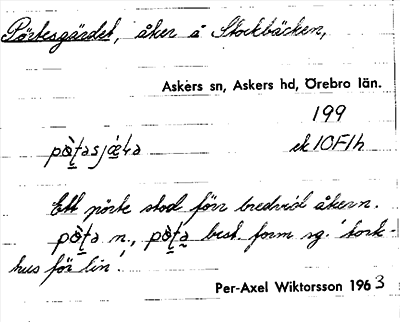 Pörtesgärdet, åker å Stockbäcken,
Askers sn, Askers hd, Örebro län.
199
ek 10F1h
Ett pörte stod förr bredvid åkern.
n., best. form sg. 'tork-
hus för lin'.
Per-Axel Wiktorsson 1963